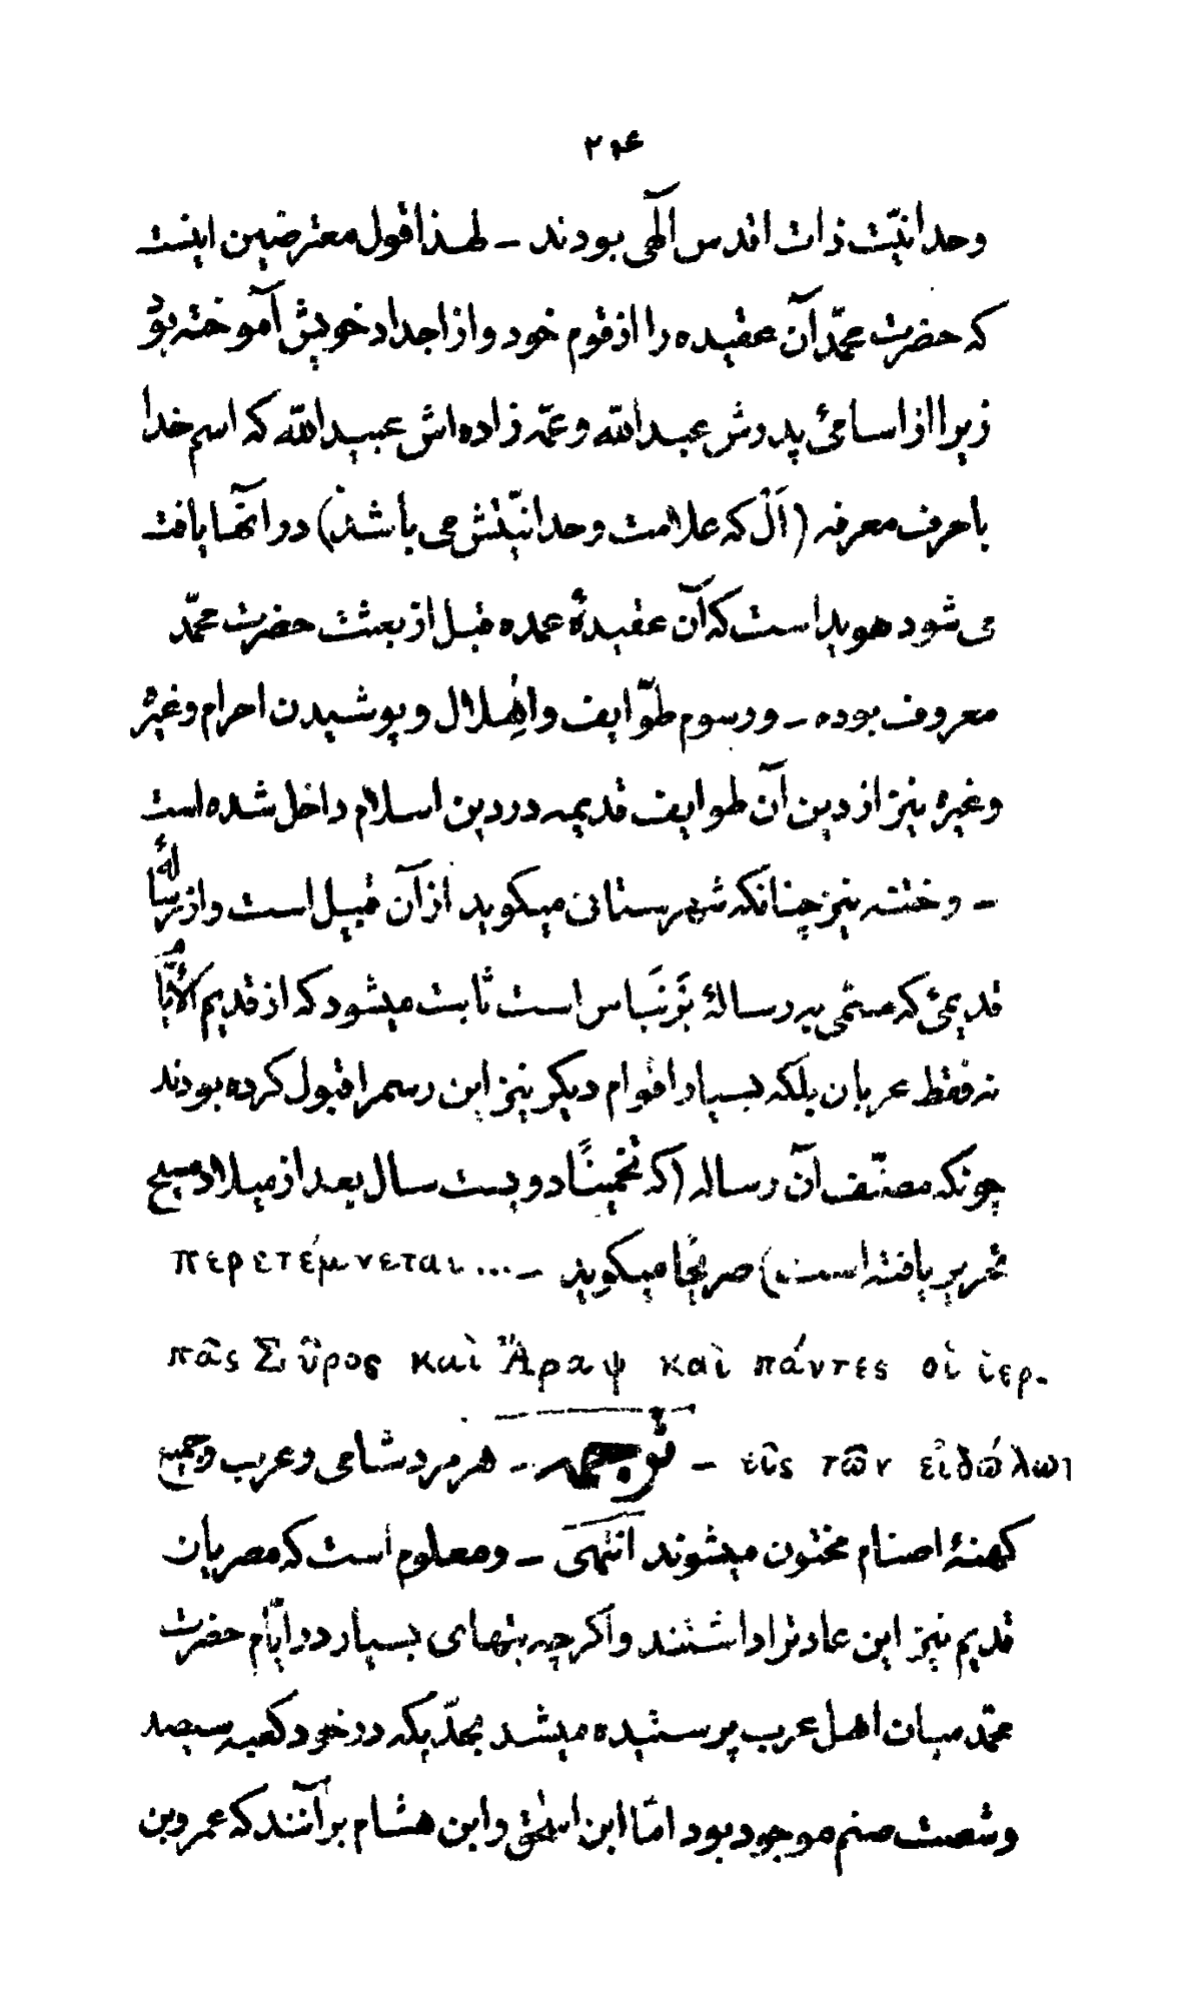 ۲۰۶
وحدانیّت ذات اقدس آلهی بودند – لهذا قول معترضین اینست
که حضرت محمّد آن عقیده را از قوم خود و از اجداد خویش آموخته بود
زیرا از اسامیٔ پدرش عبدالله و عمّ زاده‌اش عبیدالله که اسم خدا
با حرف معرفه (اَلْ که علامت وحدانیّتش می باشد) در آنها یافت
می شود هویدا است که آن عقیدهٔ عمده قبل از بعثت حضرت محمّد
معروف بوده – و رسوم طوّایف و اِهْلال و پوشیدن احرام وغیرهٔ
وغیرهٔ نیز از دین آن طوایف قدیمه در دین اسلام داخل شده است
– و ختنه نیز چنانکه شهرستانی میکوید از آن قبیل است و از رسالهٔ
قدیمیٔ که مسمّی به رسالهٔ بَرْنَباس است ثابت میشود که از قدیم الأیّام
نه فقط عربان بلکه بسیار اقوام دیکر نیز این رسم را قبول کرده بودند
چونکه مصنّف آن رساله (که تخمینًا دویست سال بعد از میلاد مسیح
تحریر یافته است) صریحًا میکوید – ... περετέμνεται
πᾶς Σῦρος καὶ Ἄραψ καὶ πάντες οἱ ἱερ-
εῖς τῶν εἰδώλων – ترجمه – هر مرد شامی و عرب و جمیع
کهنهٔ اصنام مختون میشوند انتهی – و معلوم است که مصریان
قدیم نیز این عادترا داشتند و اکرچه بتهای بسیار در ایّام حضرت
محمّد میان اهل عرب پرستیده میشد بحدّیکه در خود کعبه سیصد
و شصت صنم موجود بود امّا ابن اسحٰق و ابن هشام برآنند که عمرو بن